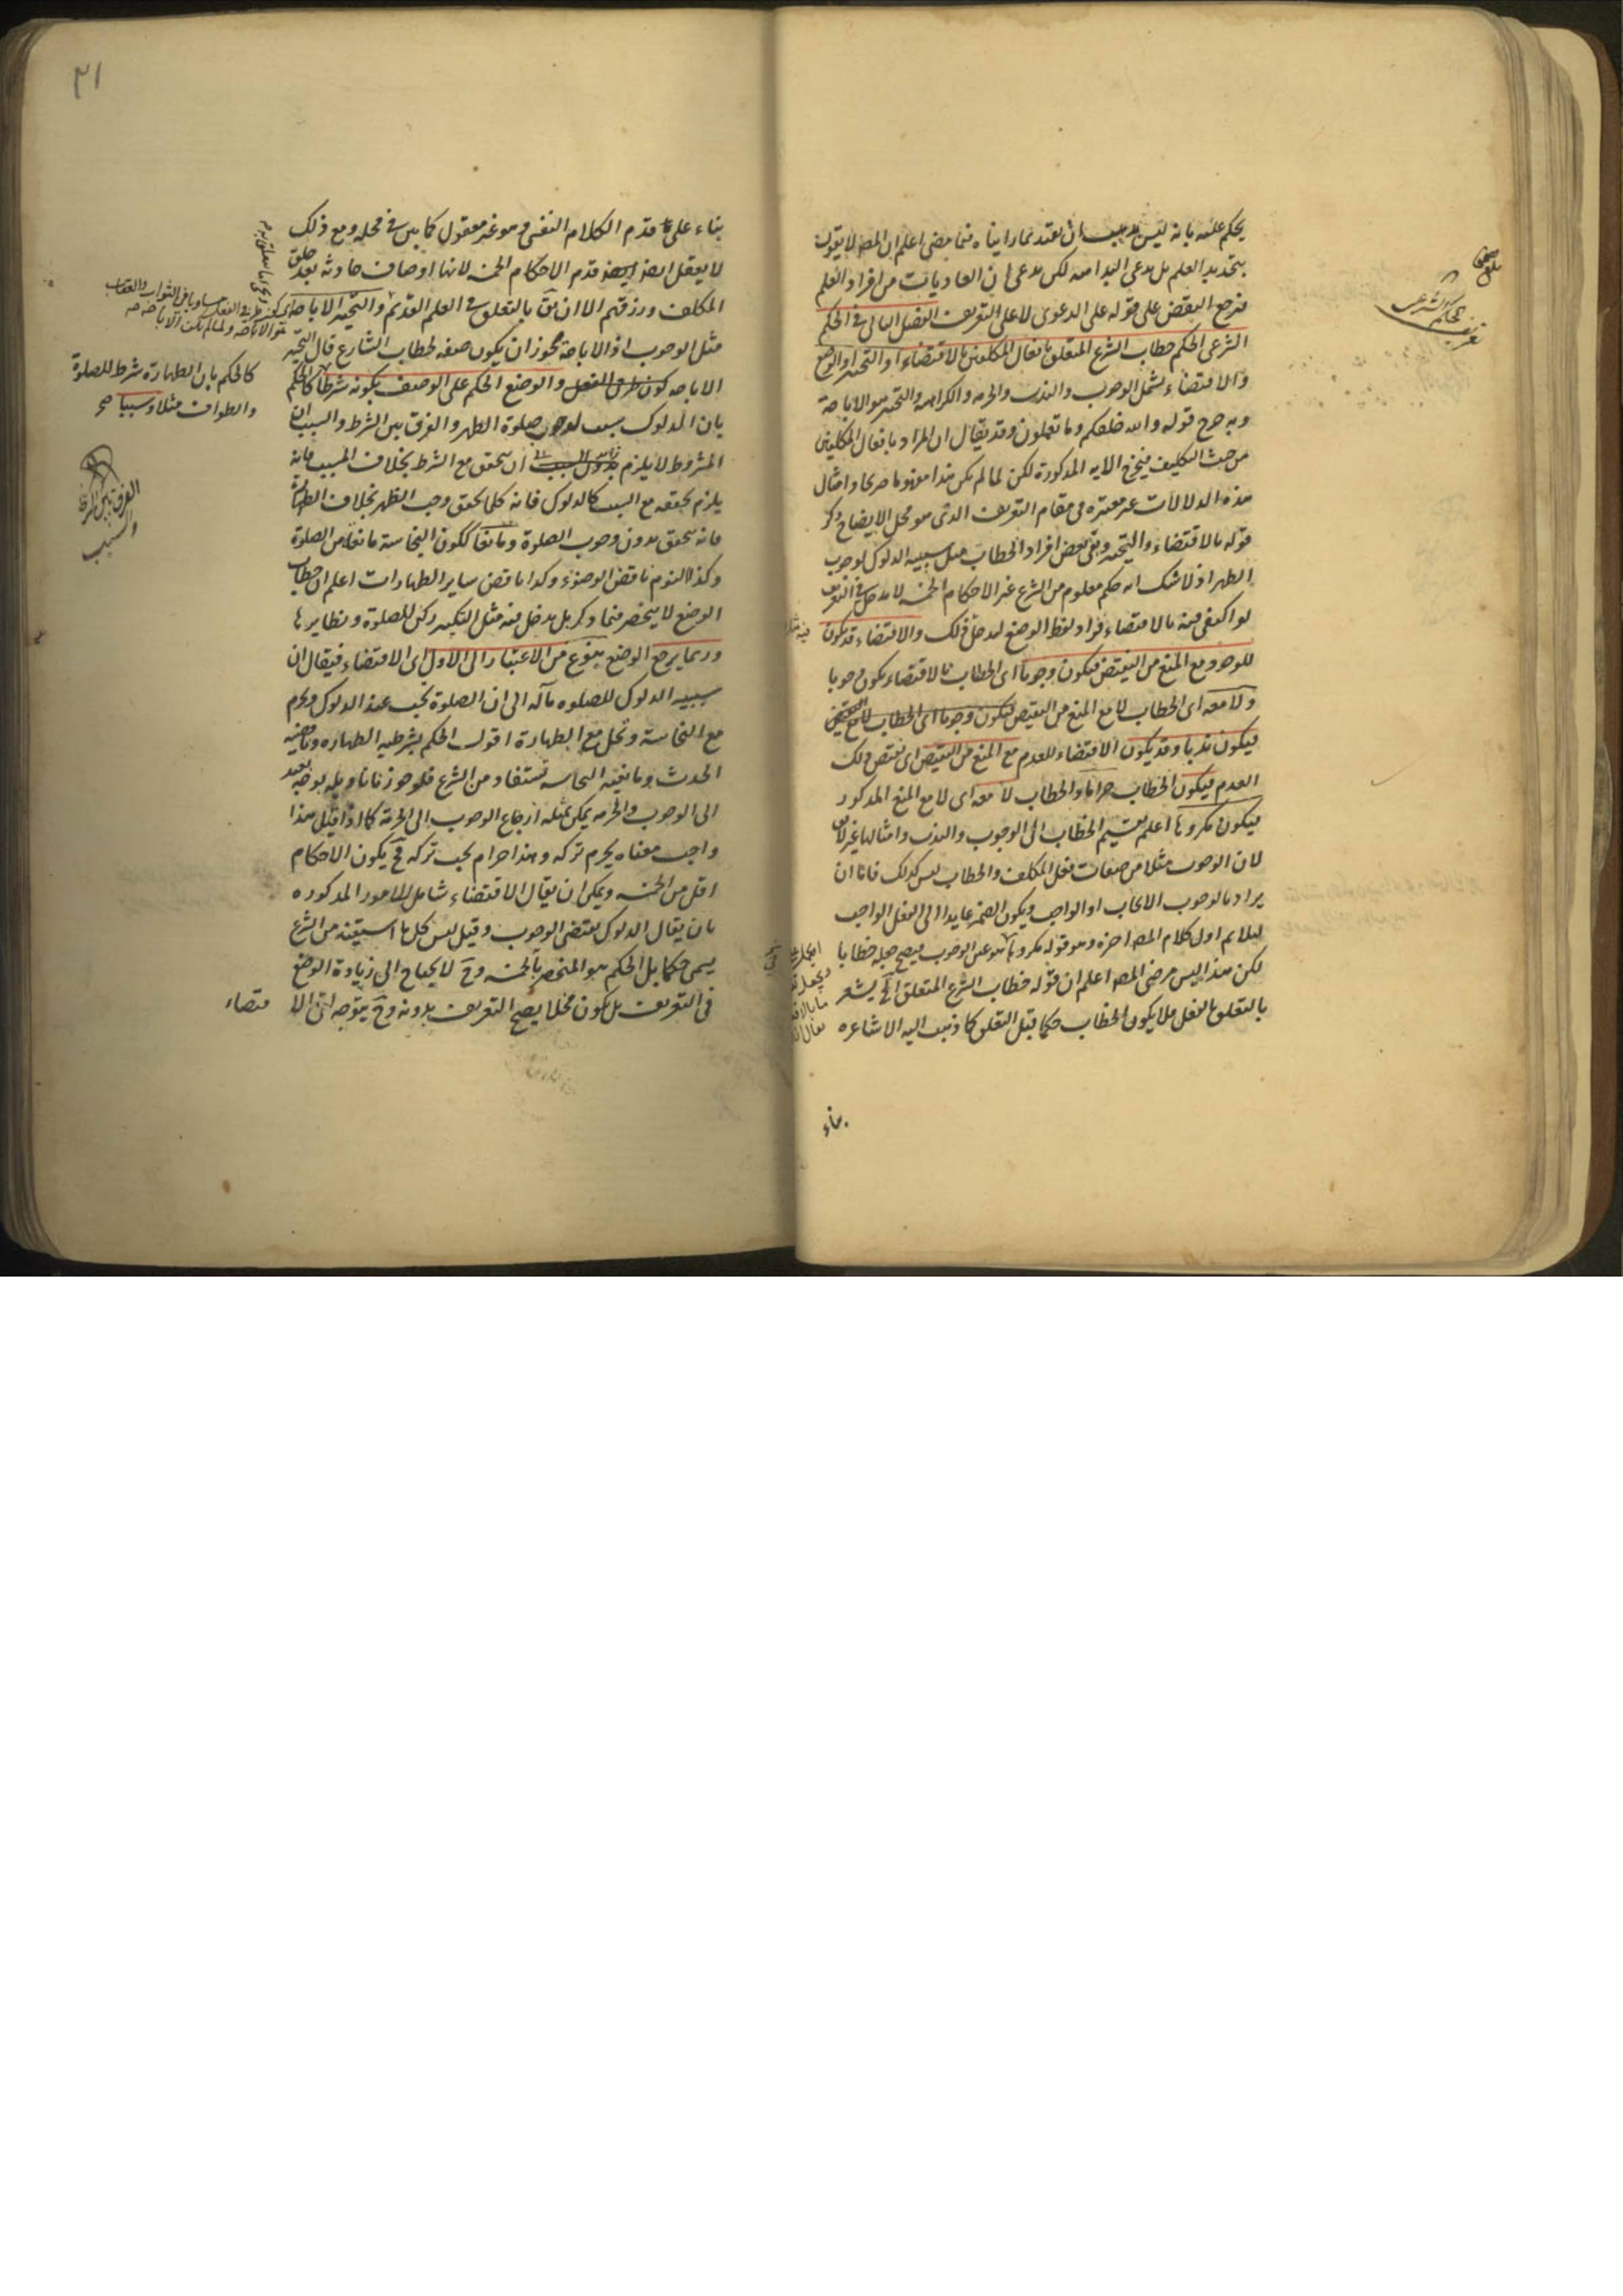 يحكم عليه بانه ليس يجب ان يعتقد بما رايناه فيما مضى اعلم ان المصـ لا يقول
بتحديد العلم بل يدعى البداهة لكن يدعى ان العاديات من افراد العلم
فيرجع النقض على قوله على الدعوى لا على التعريف الفصل الثانى فى الحكم
الشرعى الحكم خطاب الشرع المتعلق بافعال المكلفين بالاقتضاء او التخيير او الوضع
والاقتضاء يشمل الوجوب والندب والحرمه والكراهه والتخيير هو الاباحة
وبه خرج قوله والله خلقكم وما تعملون وقد يقال ان المراد بافعال المكلفين
من حيث التكليف فيخرج الايه المذكورة لكن لما لم يكن هذا مفهوما صريحا وامثال
هذه الدلالات غير معتبره فى مقام التعريف الذى هو محل الايضاح ذكر
قوله بالاقتضاء والتخيير وبقى بعض افراد الخطاب مثل سببيه الدلوك لوجوب
الظهر اذ لا شك انه حكم معلوم من الشرع غير الاحكام الخمسه لا يدخل فى التعريف
لو اكتفى فيه بالاقتضاء فزاد لفظ الوضع ليدخل ذلك والاقتضاء قد يكون
للوجود مع المنع من النقيض فيكون وجوبا اى الخطاب بالاقتضاء يكون وجوبا
ولا معه اى الخطاب لا مع المنع من النقيض فيكون وجوبا اى الخطاب لا مع النقيض
فيكون ندبا وقد يكون الاقتضاء للعدم مع المنع من النقيض اى نقيض ذلك
العدم فيكون الخطاب حراما والخطاب لا معه اى لا مع المنع المذكور
فيكون مكروها اعلم تقسيم الخطاب الى الوجوب والندب وامثالها غير لايق
لان الوجوب مثلا من صفات فعل المكلف والخطاب ليس كذلك فاما ان
يراد بالوجوب الايجاب او الواجب ويكون الضمير عايدا الى الفعل الواجب
ليلايم اول كلام المصـ اخره وهو قوله مكروها
لكن هذا ليس مرضى المصـ اعلم ان قوله خطاب الشرع المتعلق الخ يشعر
بالتعلق بالفعل فلا يكون الخطاب حكما قبل التعلق كما ذهب اليه الاشاعره
بناء
تعريف
الحكم الشرعى
٣١
بناء على قدم الكلام النفسى وهو غير معقول كما بين فى محله ومع ذلك
لا يعقل ايضا قدم الاحكام الخمسه لانها اوصاف حادثه بعد خلق
المكلف ورزقهم الا ان يق بالتعلق فى العلم القديم والتخيير الاباحه
مثل الوجوب اذ الاباحة يجوز ان يكون صفه لخطاب الشارع قال التخيير
الاباحه كون طرفى الفعل والوضع الحكم على الوصف بكونه شرطا كالحكم
بان الدلوك سبب لوجوب صلوة الظهر والفرق بين الشرط والسبب ان
المشروط لا يلزم ان يتحقق مع الشرط بخلاف المسبب فانه
يلزم تحققه مع السبب كالدلوك فانه كلما تحقق وجب الظهر بخلاف الطهارة
فانه يتحقق بدون وجوب الصلوة ومانعا ككون النجاسة مانعا من الصلوة
وكذا النوم ناقض الوضوء وكذا ناقض ساير الطهارات اعلم ان خطاب
الوضع لا ينحصر فيما ذكر بل يدخل فيه مثل التكبير ركن للصلوة ونظايرها
وربما يرجع الوضع بنوع من الاعتبار الى الاول اى الاقتضاء فيقال ان
سببيه الدلوك للصلوه مآله الى ان الصلوة تجب عند الدلوك وتحرم
مع النجاسة وتحل مع الطهارة اقول الحكم بشرطيه الطهاره وناقضيه
الحدث ومانعيه النجاسه تستفاد من الشرع فلو جوزنا تاويله بوجه بعيد
الى الوجوب والحرمه يمكن بمثله ارجاع الوجوب الى الحرمة كما اذا قيل هذا
واجب معناه يحرم تركه وهذا حرام يجب تركه فح يكون الاحكام
اقل من الخمسه ويمكن ان يقال الاقتضاء شامل للامور المذكوره
بان يقال الدلوك يقتضى الوجوب وقيل ليس كل ما استفيد من الشرع
يسمى حكما بل الحكم هو المنحصر بالخمسه وح لا يحتاج الى زيادة الوضع
فى التعريف بل يكون مخلا يصح التعريف بدونه وح يتوجه ان الا
قتضاء
كالحكم بان الطهارة شرط للصلوة
والطواف مثلا وسببا صح
الفرق بين الشرط
والسبب